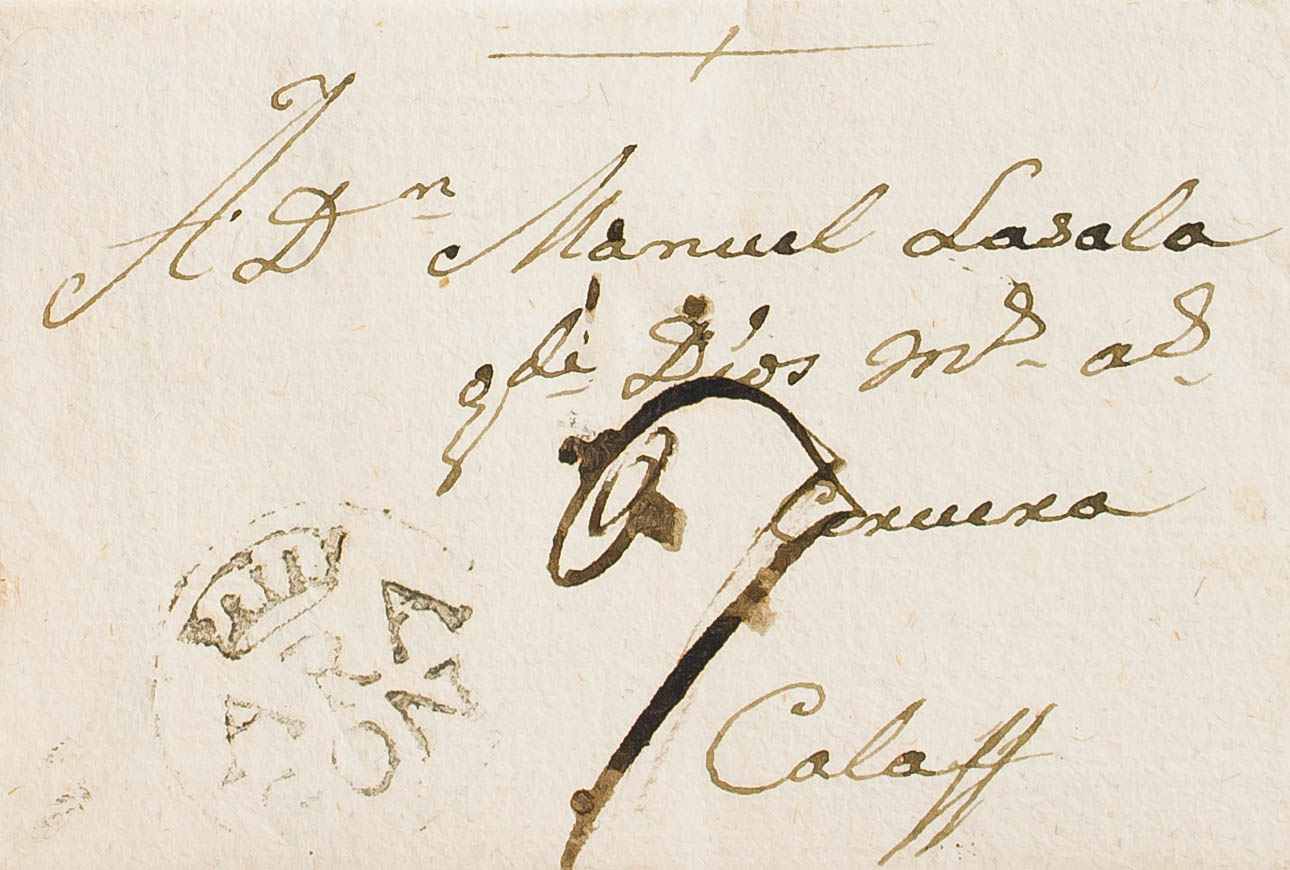 A Dn Manuel Lasala
q de Dios ms as
Ceruera
7
Calaff